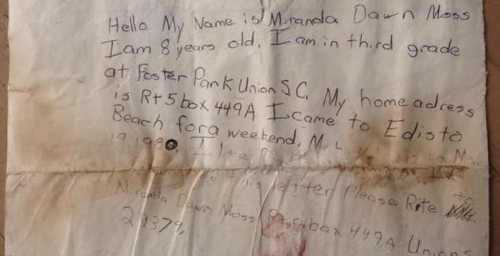 Hello My Name is Miranda Dawn Moss
I am 8 years old. I am in third grade
at Foster Park Union S C. My home adress
is Rt 5 box 449A I came to Edisto
Beach for a weekend.
letter Please Rite
Miranda Dawn Moss Rt 5 box 449A Union
29379,